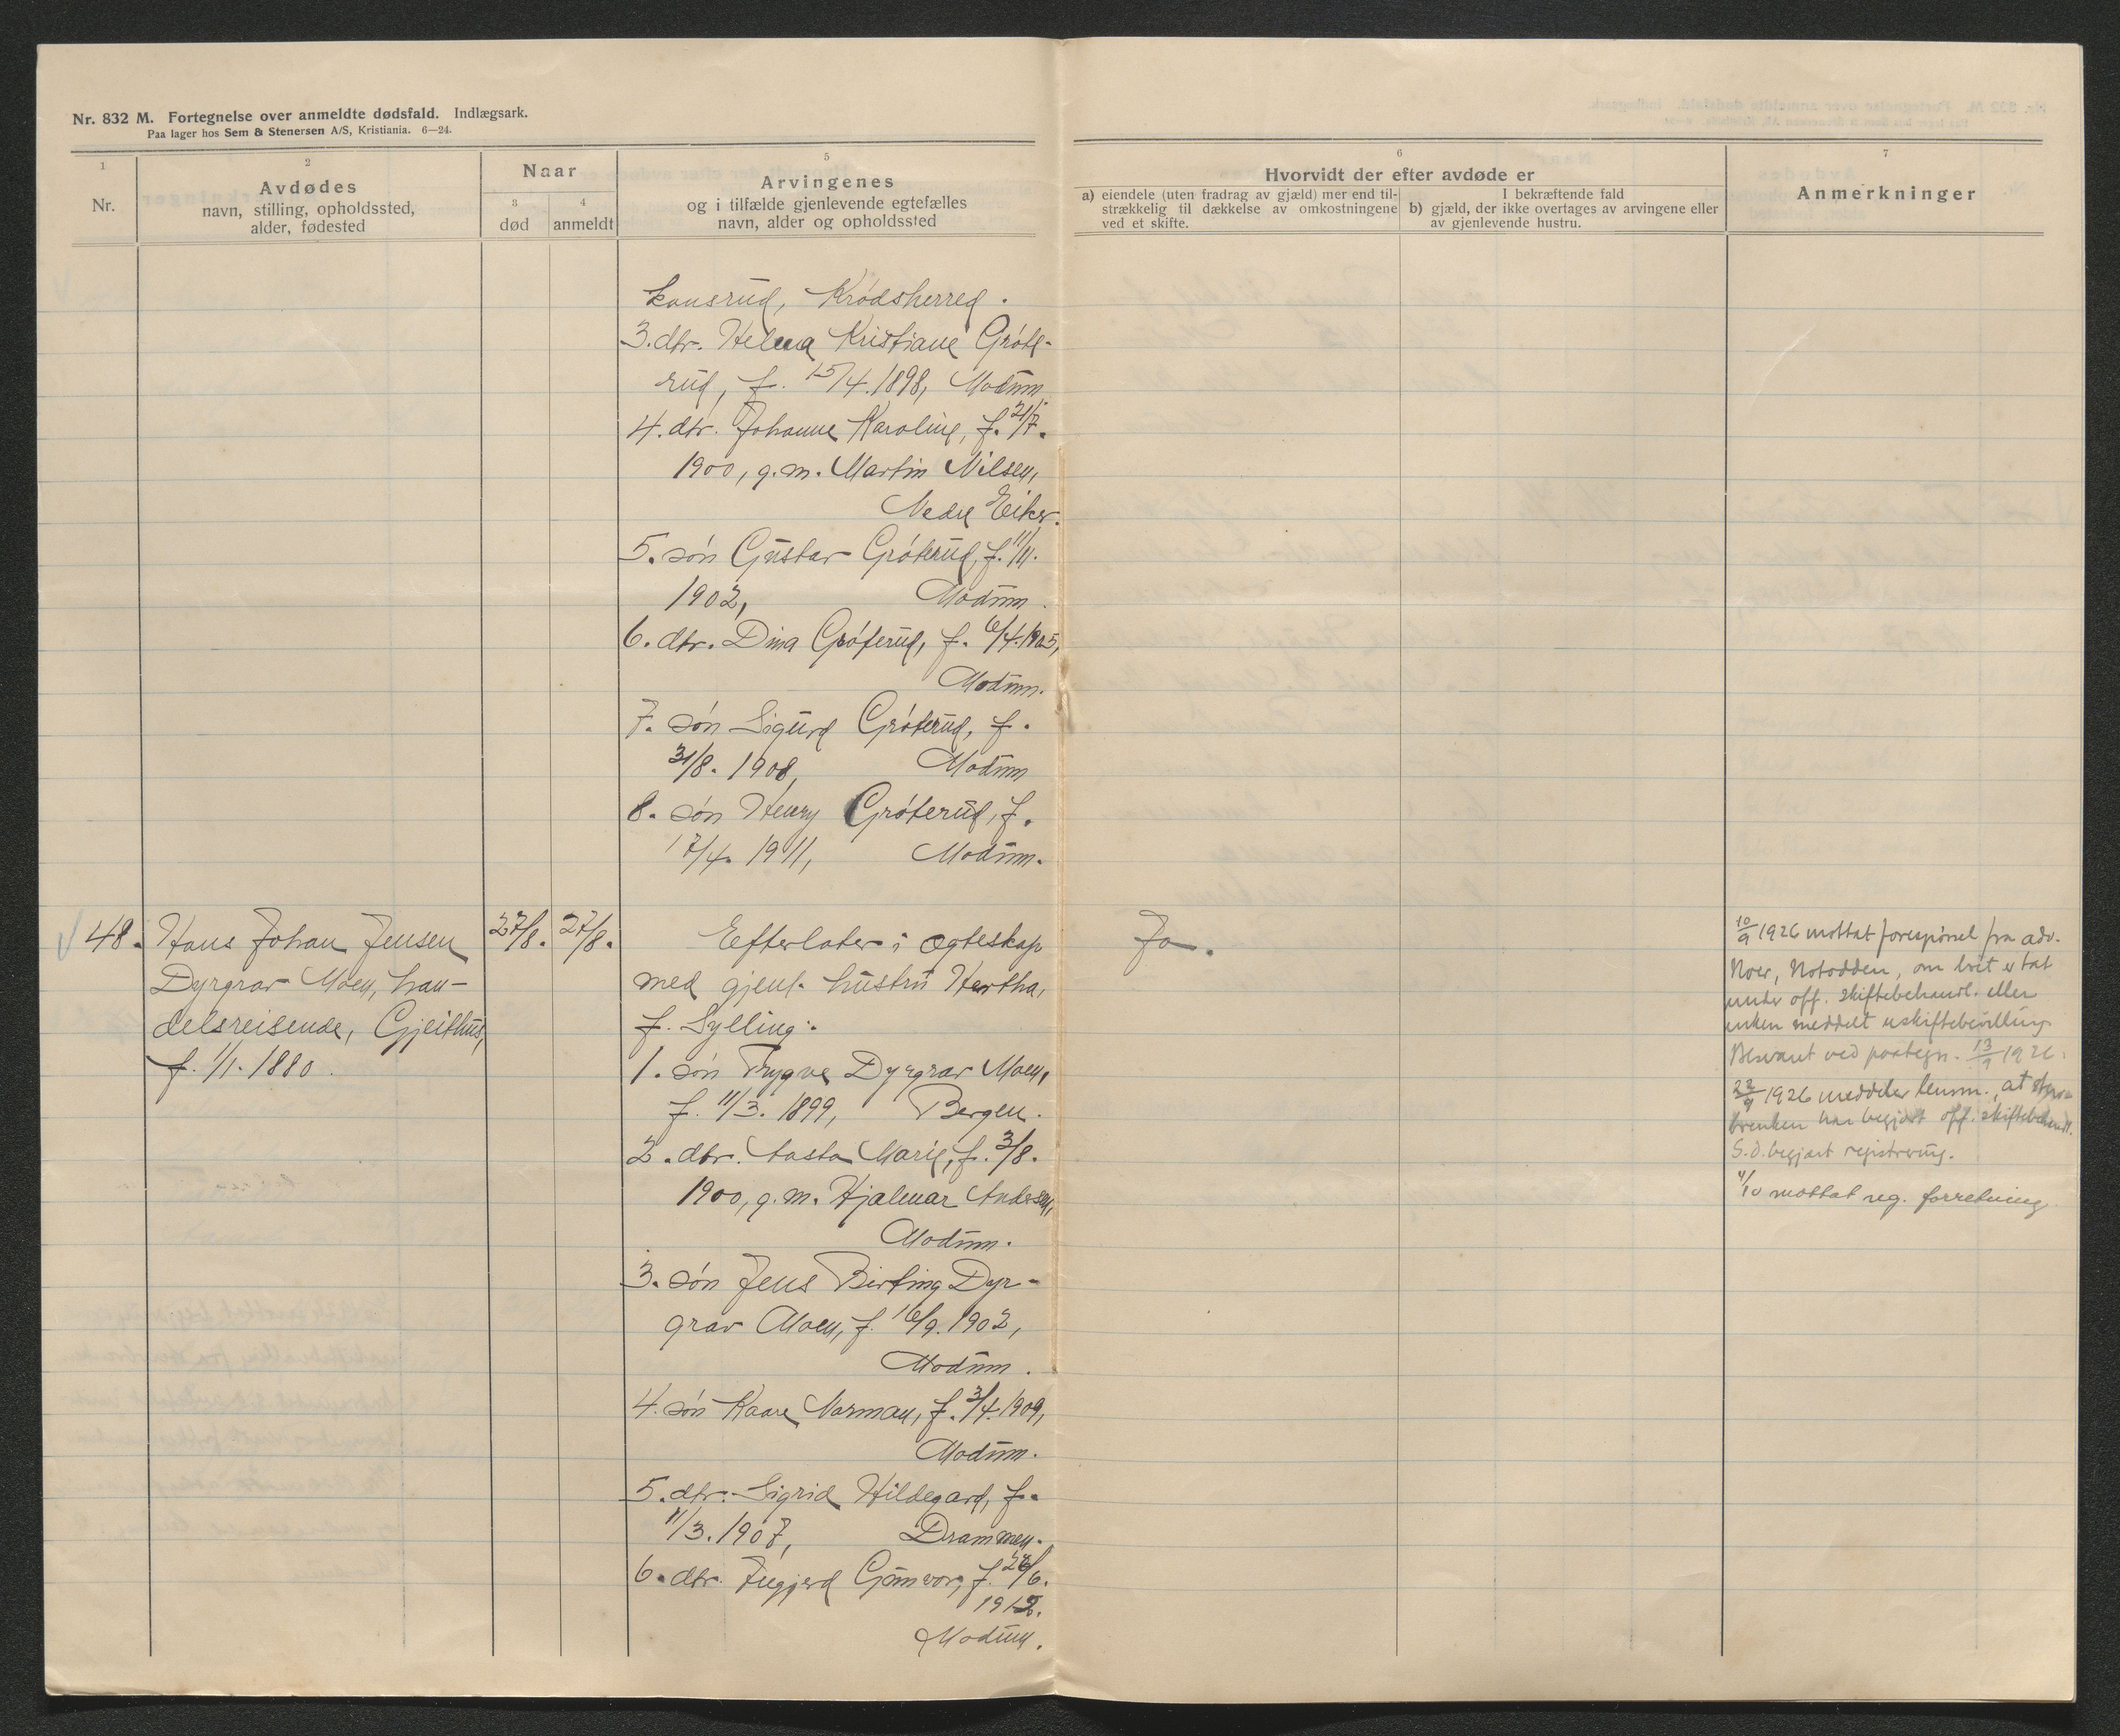 Nr. 832 M. Fortegnelse over anmeldte dødsfald. Indlægsark.
Paa lager hos Sem & Stenersen A/S, Kristiania. 6—24.
1
Nr.
2
Avdødes
navn, stilling, opholdssted,
alder, fødested
Naar
3
død
4
anmeldt
5
Arvingenes
og i tilfælde gjenlevende egtefælles
navn, alder og opholdssted
6
Hvorvidt der efter avdøde er
a) eiendele (uten fradrag av gjæld) mer end til-
strækkelig til dækkelse av omkostningene
ved et skifte.
I bekræftende fald
b) gjæld, der ikke overtages av arvingene eller
av gjenlevende hustru.
7
Anmerkninger
kansrud, Krødsherred.
3. dtr. Helma Kristiane Grøte-
rud, f. 15/4. 1898, Modum.
4. dtr. Johanne Karoline, f. 21/7.
1900, g.m. Martin Nilsen,
Nedre Eiker.
5. søn Gustav Grøterud, f. 11/11.
1902, Modum.
6. dtr. Dina Grøterud, f. 6/4. 1905,
Modum.
7. søn Sigurd Grøterud, f.
31/8. 1908, Modum
8. søn Henry Grøterud, f.
17/4. 1911, Modum.
48. Hans Johan Jensen
Dyrgrav Moen, han-
delsreisende, Gjeithus,
f. 1/1. 1880.
27/8. 27/8.
Efterlater i egteskap
med gjenl. hustru Hertha,
f. Sylling:
1. søn Trygve Dyrgrav Moen,
f. 11/3. 1899, Bergen.
2. dtr. Aasta Marie, f. 3/8.
1900, g.m. Hjalmar Andersen,
Modum.
3. søn Jens Birting Dyr-
grav Moen, f. 16/9. 1902,
Modum.
4. søn Kaare Norman, f. 3/4. 1909,
Modum.
5. dtr. Sigrid Hildegard, f.
11/3. 1907, Drammen.
6. dtr. Ingjerd Gunvor, f. 26/6.
1912.
Modum.
Ja.
10/9 1926 mottat forespørsel fra adv.
Noer, Notodden, om boet er tat
under off. skiftebehandl. eller
enken meddelt uskiftebevilling
Besvart ved paategn. 13/9 1926.
23/9 1926 meddeler lensm., at
enken har begjært off. skiftebehandl.
S.d. begjært registrering.
4/10 mottat reg. forretning